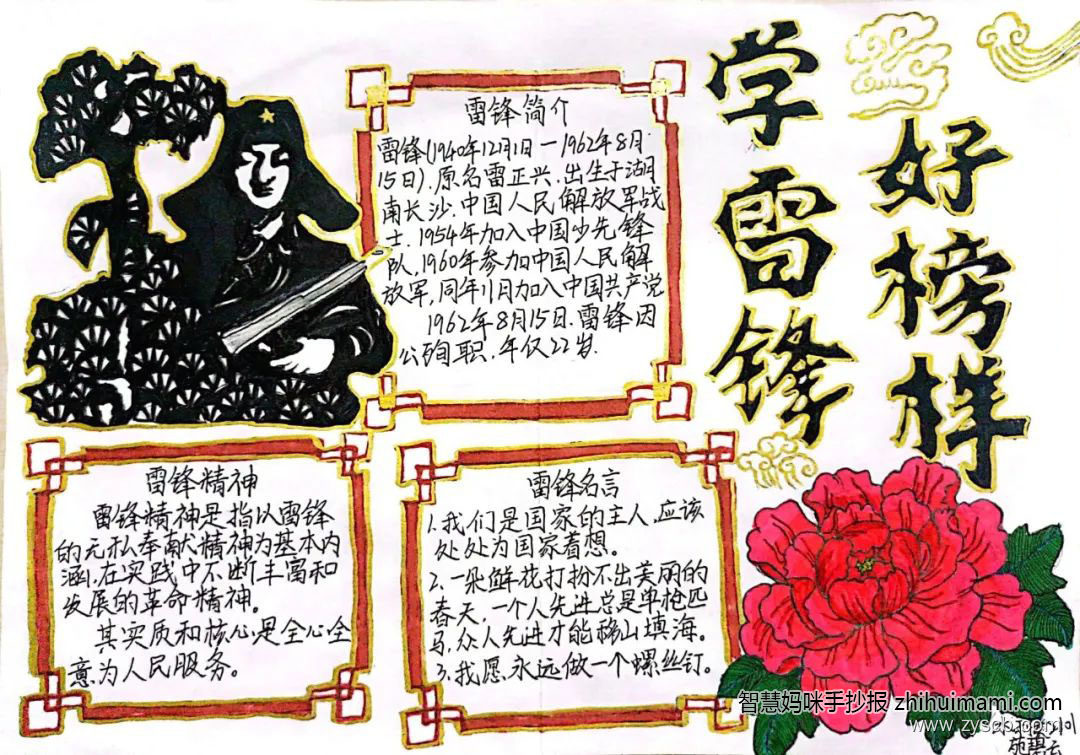 学雷锋
好榜样
雷锋简介
雷锋(1940年12月1日—1962年8月
15日),原名雷正兴,出生于湖
南长沙,中国人民解放军战
士,1954年加入中国少先锋
队,1960年参加中国人民解
放军,同年11月加入中国共产党
1962年8月15日,雷锋因
公殉职,年仅22岁.
雷锋精神
雷锋精神是指以雷锋
的无私奉献精神为基本内
涵,在实践中不断丰富和
发展的革命精神。
其实质和核心是全心全
意为人民服务。
雷锋名言
1.我们是国家的主人,应该
处处为国家着想。
2.一朵鲜花打扮不出美丽的
春天,一个人先进总是单枪匹
马,众人先进才能移山填海。
3.我愿永远做一个螺丝钉.
智慧妈咪手抄报 zhihuimami.com
www.zyscb.com